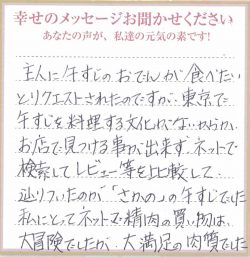 幸せのメッセージお聞かせください
あなたの声が、私達の元気の素です!
主人に牛すじのおでんが食べたい
とリクエストされたのですが、東京で
牛すじを料理する文化がないからか
お店で見つける事が出来ず、ネットで
検索してレビュー等を比較して
辿りついたのが「さかの」の牛すじでした
私にとってネットで精肉の買い物は、
大冒険でしたが、大満足の肉質でした